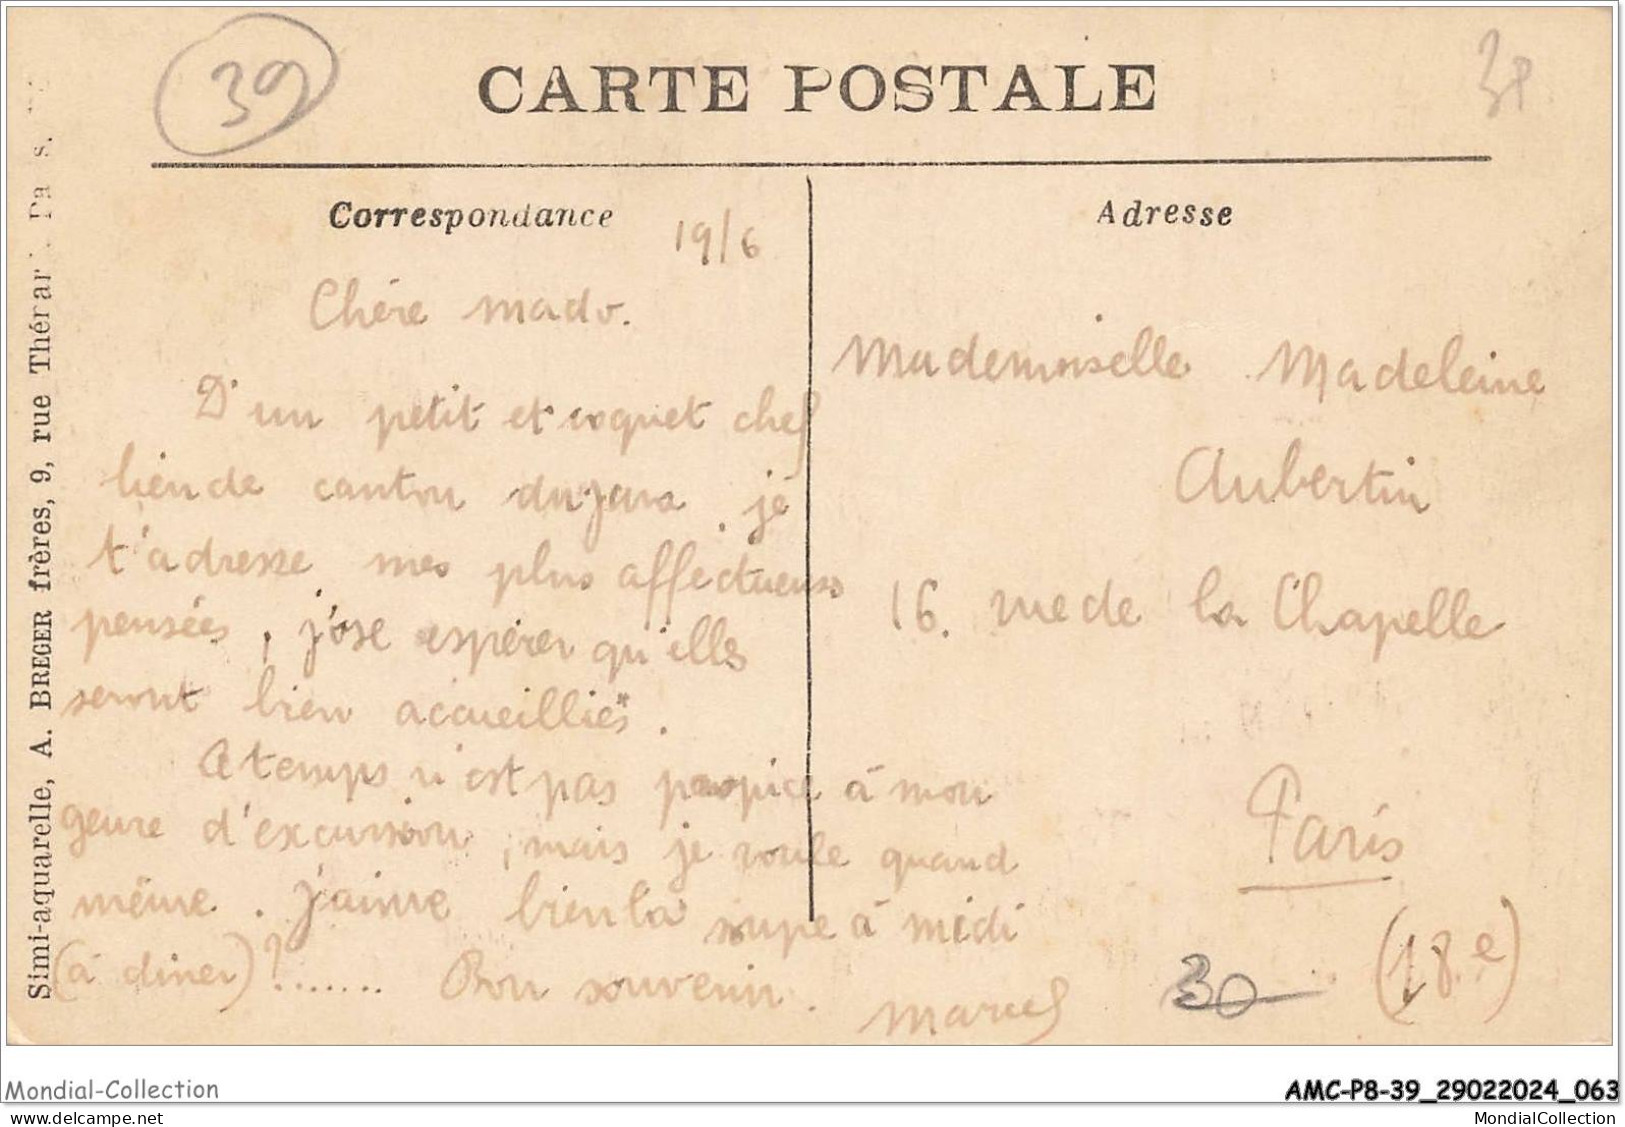 39
CARTE POSTALE
Correspondance
19/6
Chère mado.
D'un petit et coquet chef
lieu de canton du Jura. je
t'adresse mes plus affectueuses
pensées, j'ose espérer qu'elles
seront bien accueillies.
temps n'est pas propice à mon
genre d'excursion, mais je roule quand
même. J'aime bien la supe à midi
(à diner)?.......
Bon souvenir.
Marcel
Adresse
Mademoiselle Madeleine
Aubertin
16. rue de la Chapelle
Paris
(18.e)
30
Simi-aquarelle, A. BREGER frères, 9, rue Thérar
Mondial-Collection
AMC-P8-39_29022024_063
www.delcampe.net
MondialCollection